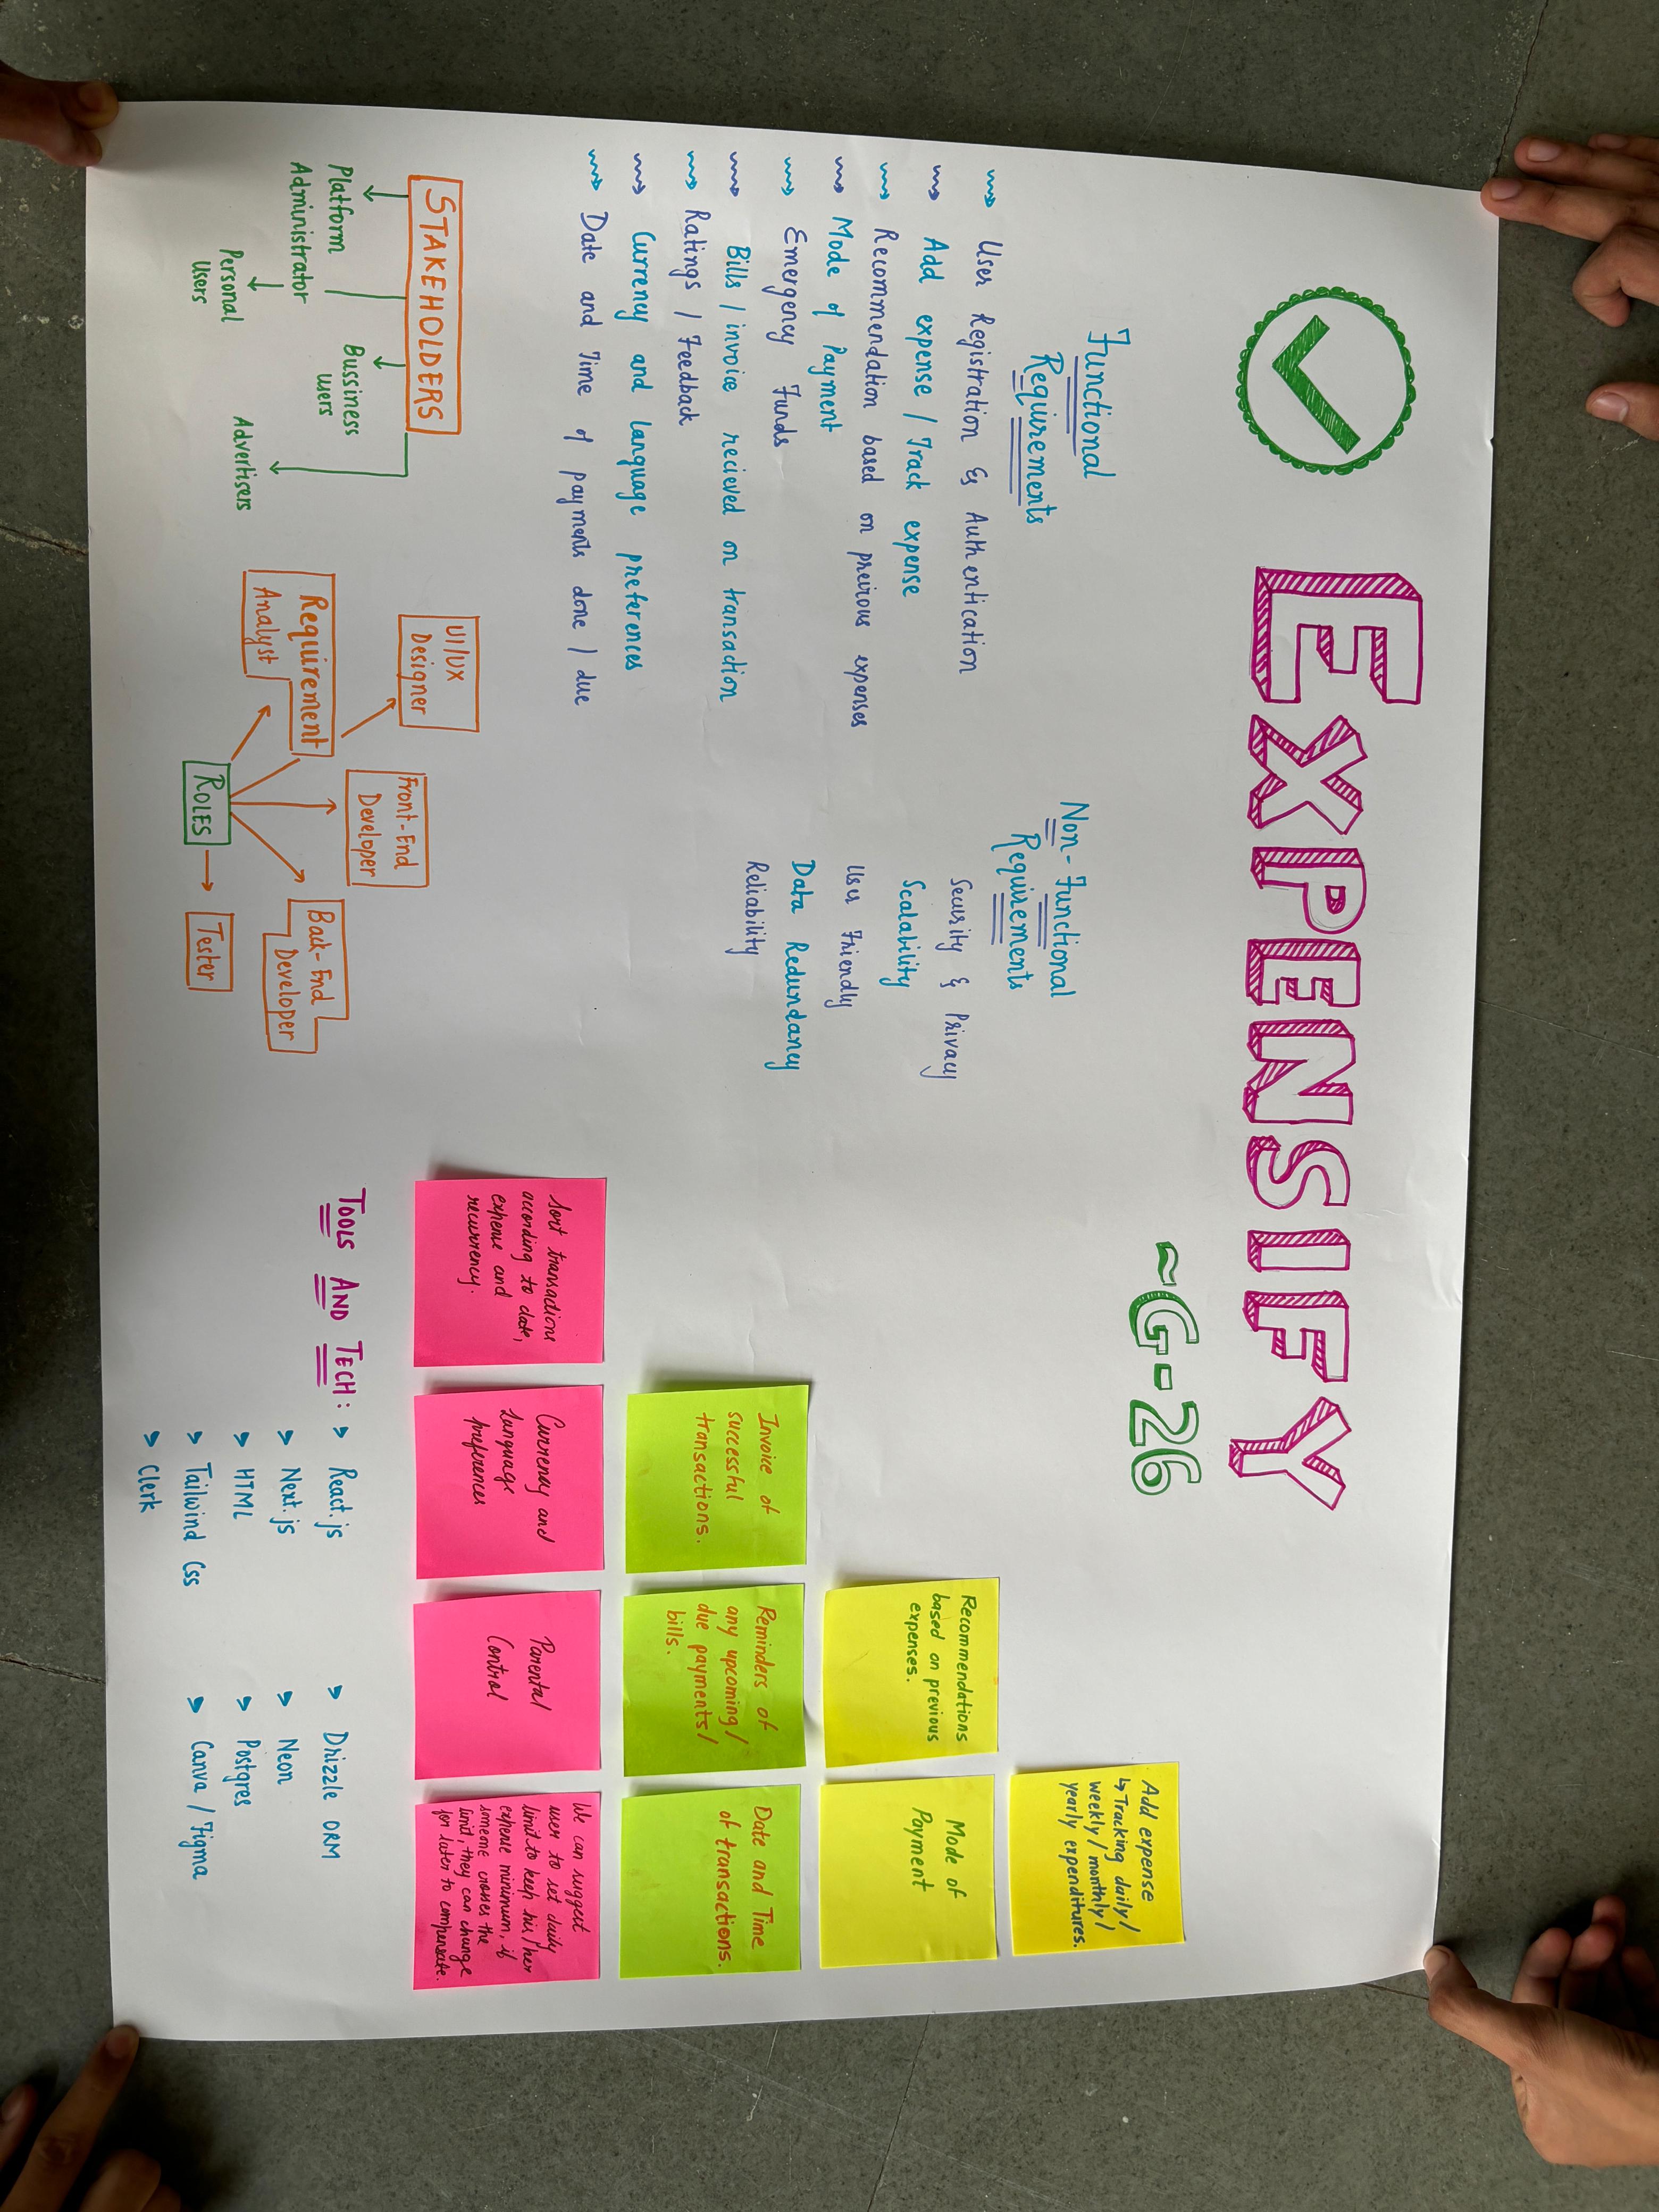 EXPENSIFY
~G-26
Functional
Requirements
User Registration & Authentication
Add expense / Track expense
Recommendation based on previous expenses
Mode of Payment
Emergency Funds
Bills / invoice recieved on transaction
Ratings / Feedback
Currency and language preferences
Date and Time of payments done / due
Non-Functional
Requirements
Security & Privacy
Scalability
User Friendly
Data Redundancy
Reliability
Add expense
↳ Tracking daily/
weekly/monthly/
yearly expenditures.
Recommendations
based on previous
expenses.
Mode of
Payment
Invoice of
successful
transactions.
Reminders of
any upcoming/
due payments/
bills.
Date and Time
of transactions.
Sort transactions
according to date,
expense and
recurrency.
Currency and
Language
preferences
Parental
Control
We can suggest
user to set daily
limit to keep his/her
expense minimum, if
someone crosses the
limit, they can change
for later to compensate.
STAKEHOLDERS
Platform
Administrator
Personal
Users
Bussiness
users
Advertisers
UI/UX
Designer
Front-End
Developer
Requirement
Analyst
Back-End
Developer
ROLES
Tester
TOOLS AND TECH:
React.js
Next.js
HTML
Tailwind Css
Clerk
Drizzle ORM
Neon
Postgres
Canva / Figma